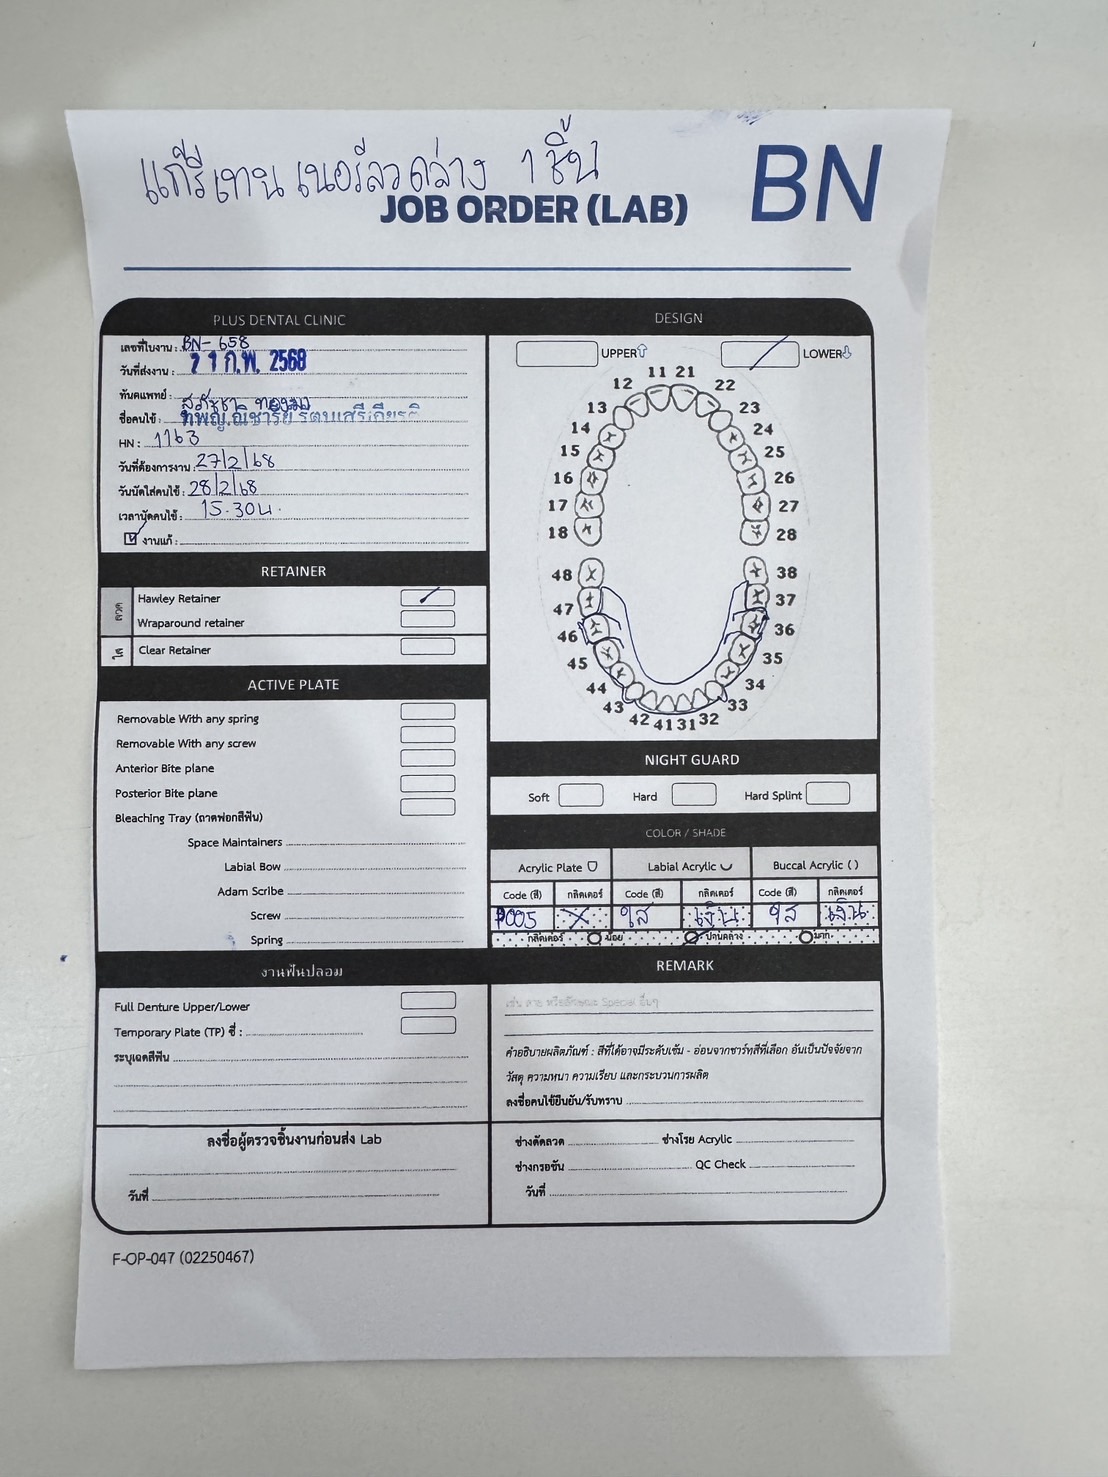 แก้รีเทนเนอร์ลวดล่าง 1 ชิ้น
JOB ORDER (LAB)
BN
PLUS DENTAL CLINIC
เลขที่ใบงาน : BN-658
วันที่ส่งงาน : 21 ก.พ. 2568
ทันตแพทย์ :
ชื่อคนไข้ :
HN : 1163
วันที่ต้องการงาน : 27/2/68
วันนัดใส่คนไข้ : 28/2/68
เวลานัดคนไข้ : 15.30น.
งานแก้ :
RETAINER
ลวด
Hawley Retainer
Wraparound retainer
ใส
Clear Retainer
ACTIVE PLATE
Removable With any spring
Removable With any screw
Anterior Bite plane
Posterior Bite plane
Bleaching Tray (ถาดฟอกสีฟัน)
Space Maintainers
Labial Bow
Adam Scribe
Screw
Spring
งานฟันปลอม
Full Denture Upper/Lower
Temporary Plate (TP) ซี่ :
ระบุเฉดสีฟัน
ลงชื่อผู้ตรวจชิ้นงานก่อนส่ง Lab
วันที่
DESIGN
UPPER
LOWER
11 21
12 22
13 23
14 24
15 25
16 26
17 27
18 28
48 38
47 37
46 36
45 35
44 34
43 33
42 41 31 32
NIGHT GUARD
Soft Hard Hard Splint
COLOR / SHADE
Acrylic Plate Labial Acrylic Buccal Acrylic ( )
Code (สี) กลิตเตอร์ Code (สี) กลิตเตอร์ Code (สี) กลิตเตอร์
P005 X ใส เงิน ใส เงิน
กลิตเตอร์ น้อย ปานกลาง มาก
REMARK
เช่น ลาย หรือลักษณะ Special อื่นๆ
คำอธิบายผลิตภัณฑ์ : สีที่ได้อาจมีระดับเข้ม - อ่อนจากชาร์ทสีที่เลือก อันเป็นปัจจัยจาก
วัสดุ ความหนา ความเรียบ และกระบวนการผลิต
ลงชื่อคนไข้ยืนยัน/รับทราบ
ช่างดัดลวด ช่างโรย Acrylic
ช่างกรอขัน QC Check
วันที่
F-OP-047 (02250467)